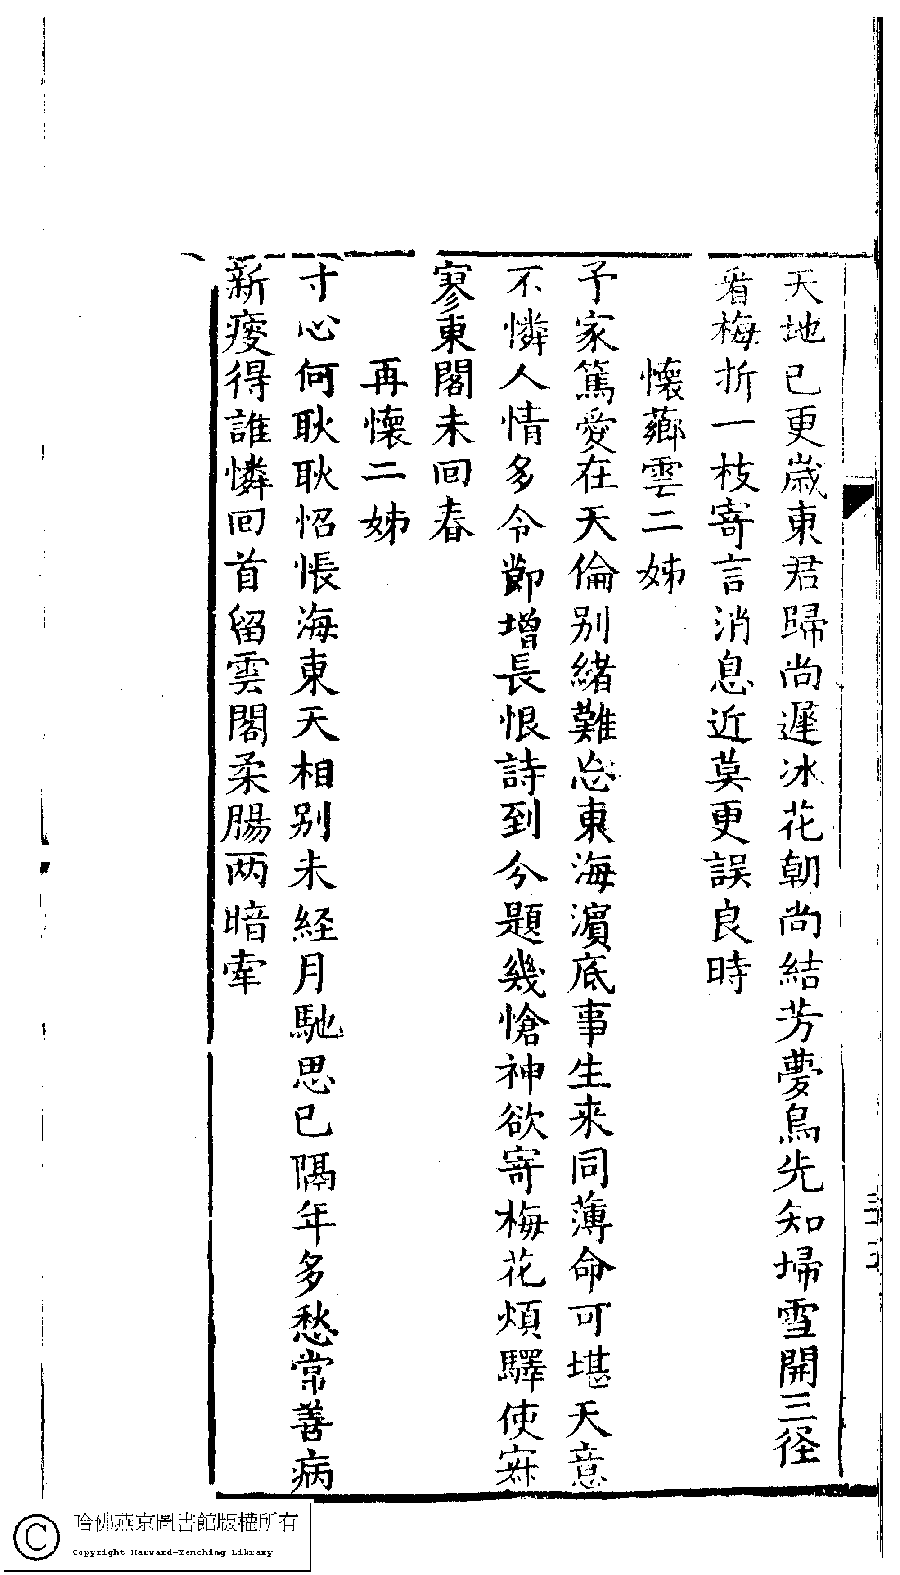 天地已更歲東君歸尚遲冰花朝尚結芳夢鳥先知埽雪開三径
看梅折一枝寄言消息近莫更誤良時
懷薌雲二姊
予家篤愛在天倫别緒難忘東海濵底事生来同薄命可堪天意
不憐人情多令節增長恨詩到分題幾愴神欲寄梅花煩驛使寂
寥東閣未回春
再懷二姊
寸心何耿耿怊悵海東天相别未経月馳思已隔年多愁常善病
新瘦得誰憐回首留雲閣柔腸两暗牽
哈佛燕京圖書館版權所有
Copyright Harvard-Yenching Library